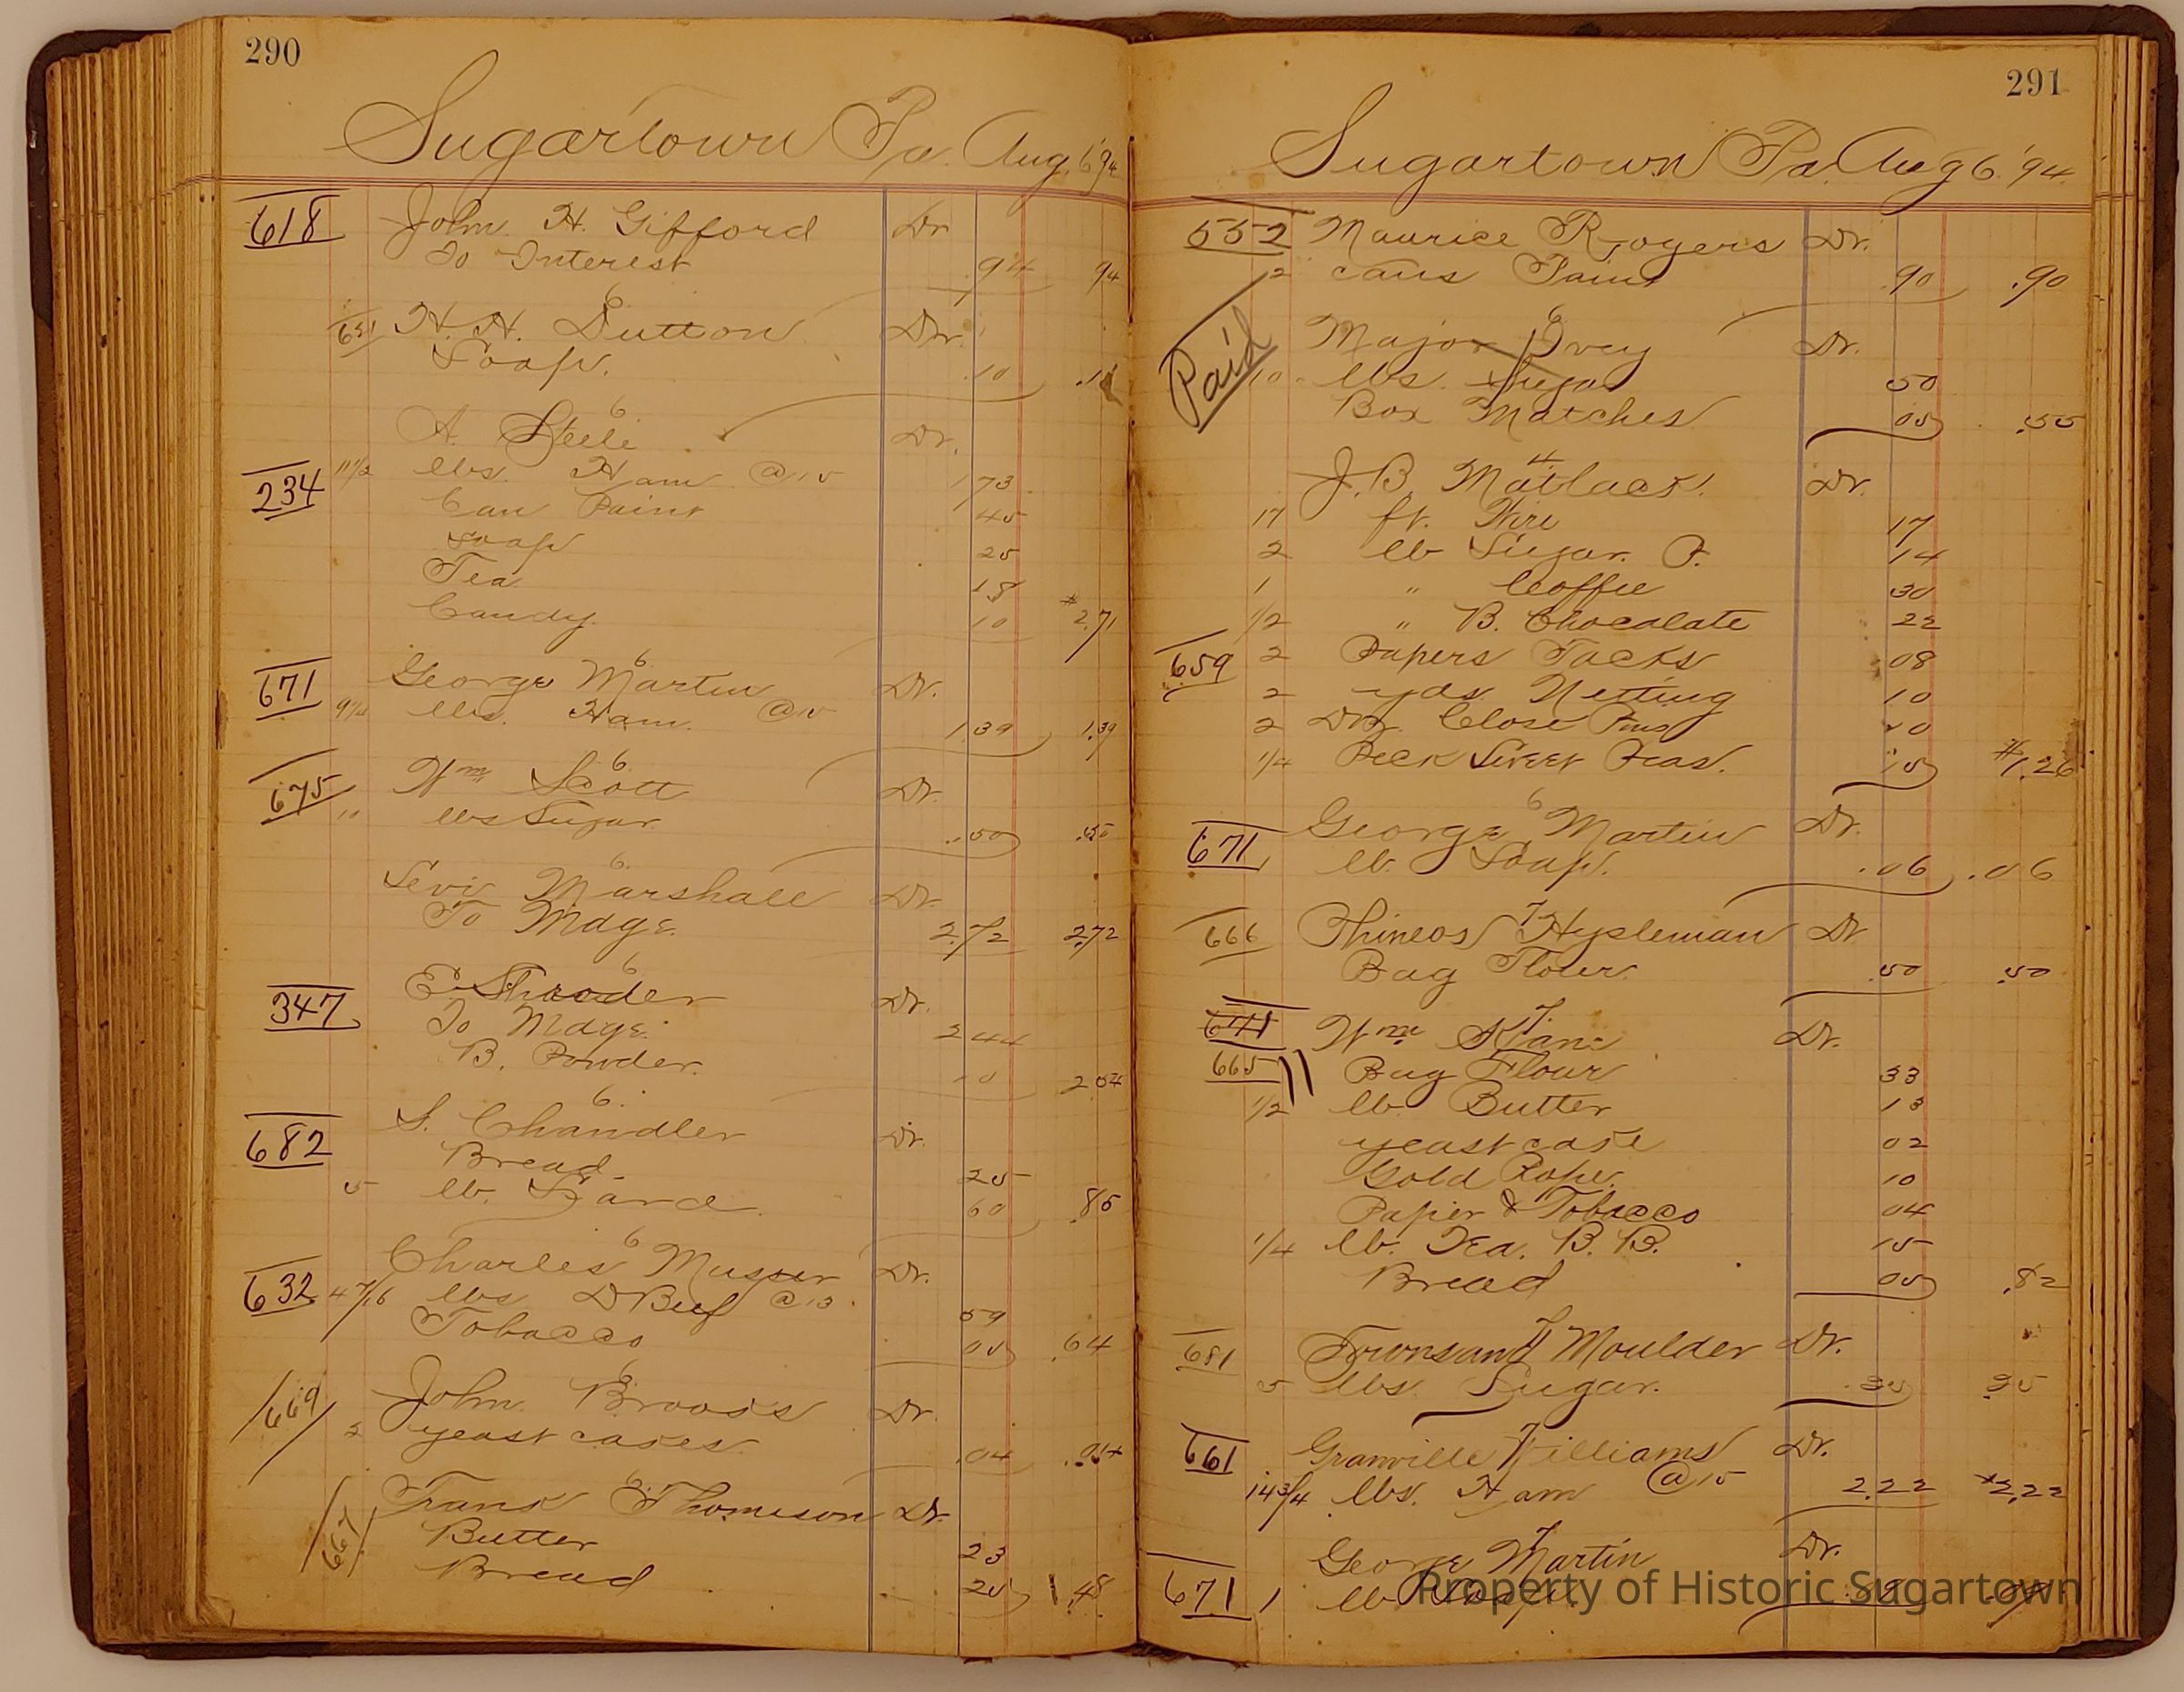 290
Sugartown Pa. Aug. 6 '94
618 John H. Gifford Dr
To Interest .94 94
6
H. H. Dutton Dr.
Soap. .10
6
A. Steele Dr.
234 11 1/2 lbs. Ham @ 15 1 73
Can Paint 45
Soap 25
Tea 18
Candy. 10 $2.71
6
671 George Martin Dr.
9 1/4 lbs. Ham. @ 15 1.39 1.39
6
675 Wm Scott Dr.
10 lbs Sugar .50 .50
6
Levi Marshall Dr.
To Mdge. 2.72 2.72
6
347 E. Shrader Dr.
To Mdge. 2 44
B. Powder. 10 2 54
6.
682 S. Chandler Dr.
Bread. 25
5 lb. Lard. 60 .85
6
632 Charles Musser Dr.
4 7/16 lbs D Beef @ 13 59
Tobacco 05 .64
6
669 John Brooks Dr.
2 yeast cakes. .04 .04
6
667 Frank Thomson Dr.
Butter 23
Bread 25 .48
291
Sugartown Pa. Aug 6 '94
552 Maurice Rogers Dr.
2 cans Paint .90 .90
6
Paid Major Ivey Dr.
10 lbs. Sugar 50
Box Matches 05 .55
J. B. Matlack. Dr.
17 ft. Wire 17
2 lb Sugar. P. 14
1 " Coffee 30
1/2 " B. Chocolate 22
659 2 Papers Tacks 08
2 yds Netting 10
2 Doz. Close Pins
1/4 Peck Sweet Peas. 15 $1.26
6
671 George Martin Dr.
lb. Soap. .06 .06
7
666 Phineos Hysleman Dr
Bag Flour. .50 .50
7
641 Wm Kane Dr.
665 Bag Flour 33
1/2 lb Butter 13
yeast cake 02
Gold Rope. 10
Paper & Tobacco 04
1/4 lb. Tea. B. B. 15
Bread 05 .82
7
681 Townsand Moulder Dr.
5 lbs. Sugar. .35 .35
7
661 Granville Williams Dr.
14 3/4 lbs. Ham @ 15 2.22 $2.22
7
George Martin Dr.
671 1 lb
Property of Historic Sugartown